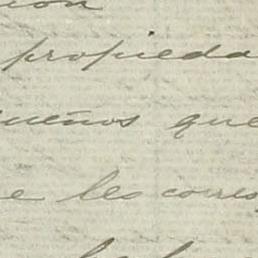 propieda
ueños que
e les corres